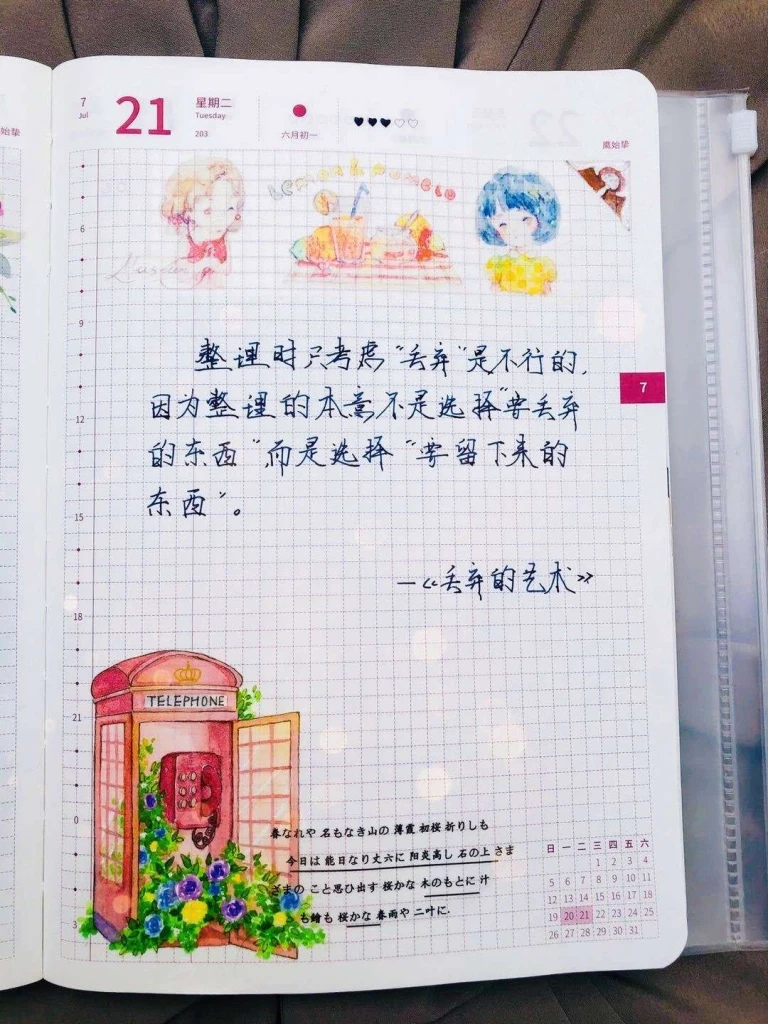 7
Jul
21
星期二
Tuesday
203
六月初一
鹰始挚
始挚
6
9
12
15
18
21
0
3
7
整理时只考虑“丢弃”是不行的,
因为整理的本意不是选择“要丢弃
的东西”而是选择“要留下来的
东西”。
—《丢弃的艺术》
TELEPHONE
春なれや 名もなき山の 薄霞 初桜 折りしも
今日は 能日なり 丈六に 陽炎高し 石の上 さま
ざまの こと思ひ出す 桜かな 木のもとに 汁
も鱠も 桜かな 春雨や 二叶に.
日 一 二 三 四 五 六
1 2 3 4
5 6 7 8 9 10 11
12 13 14 15 16 17 18
19 20 21 22 23 24 25
26 27 28 29 30 31